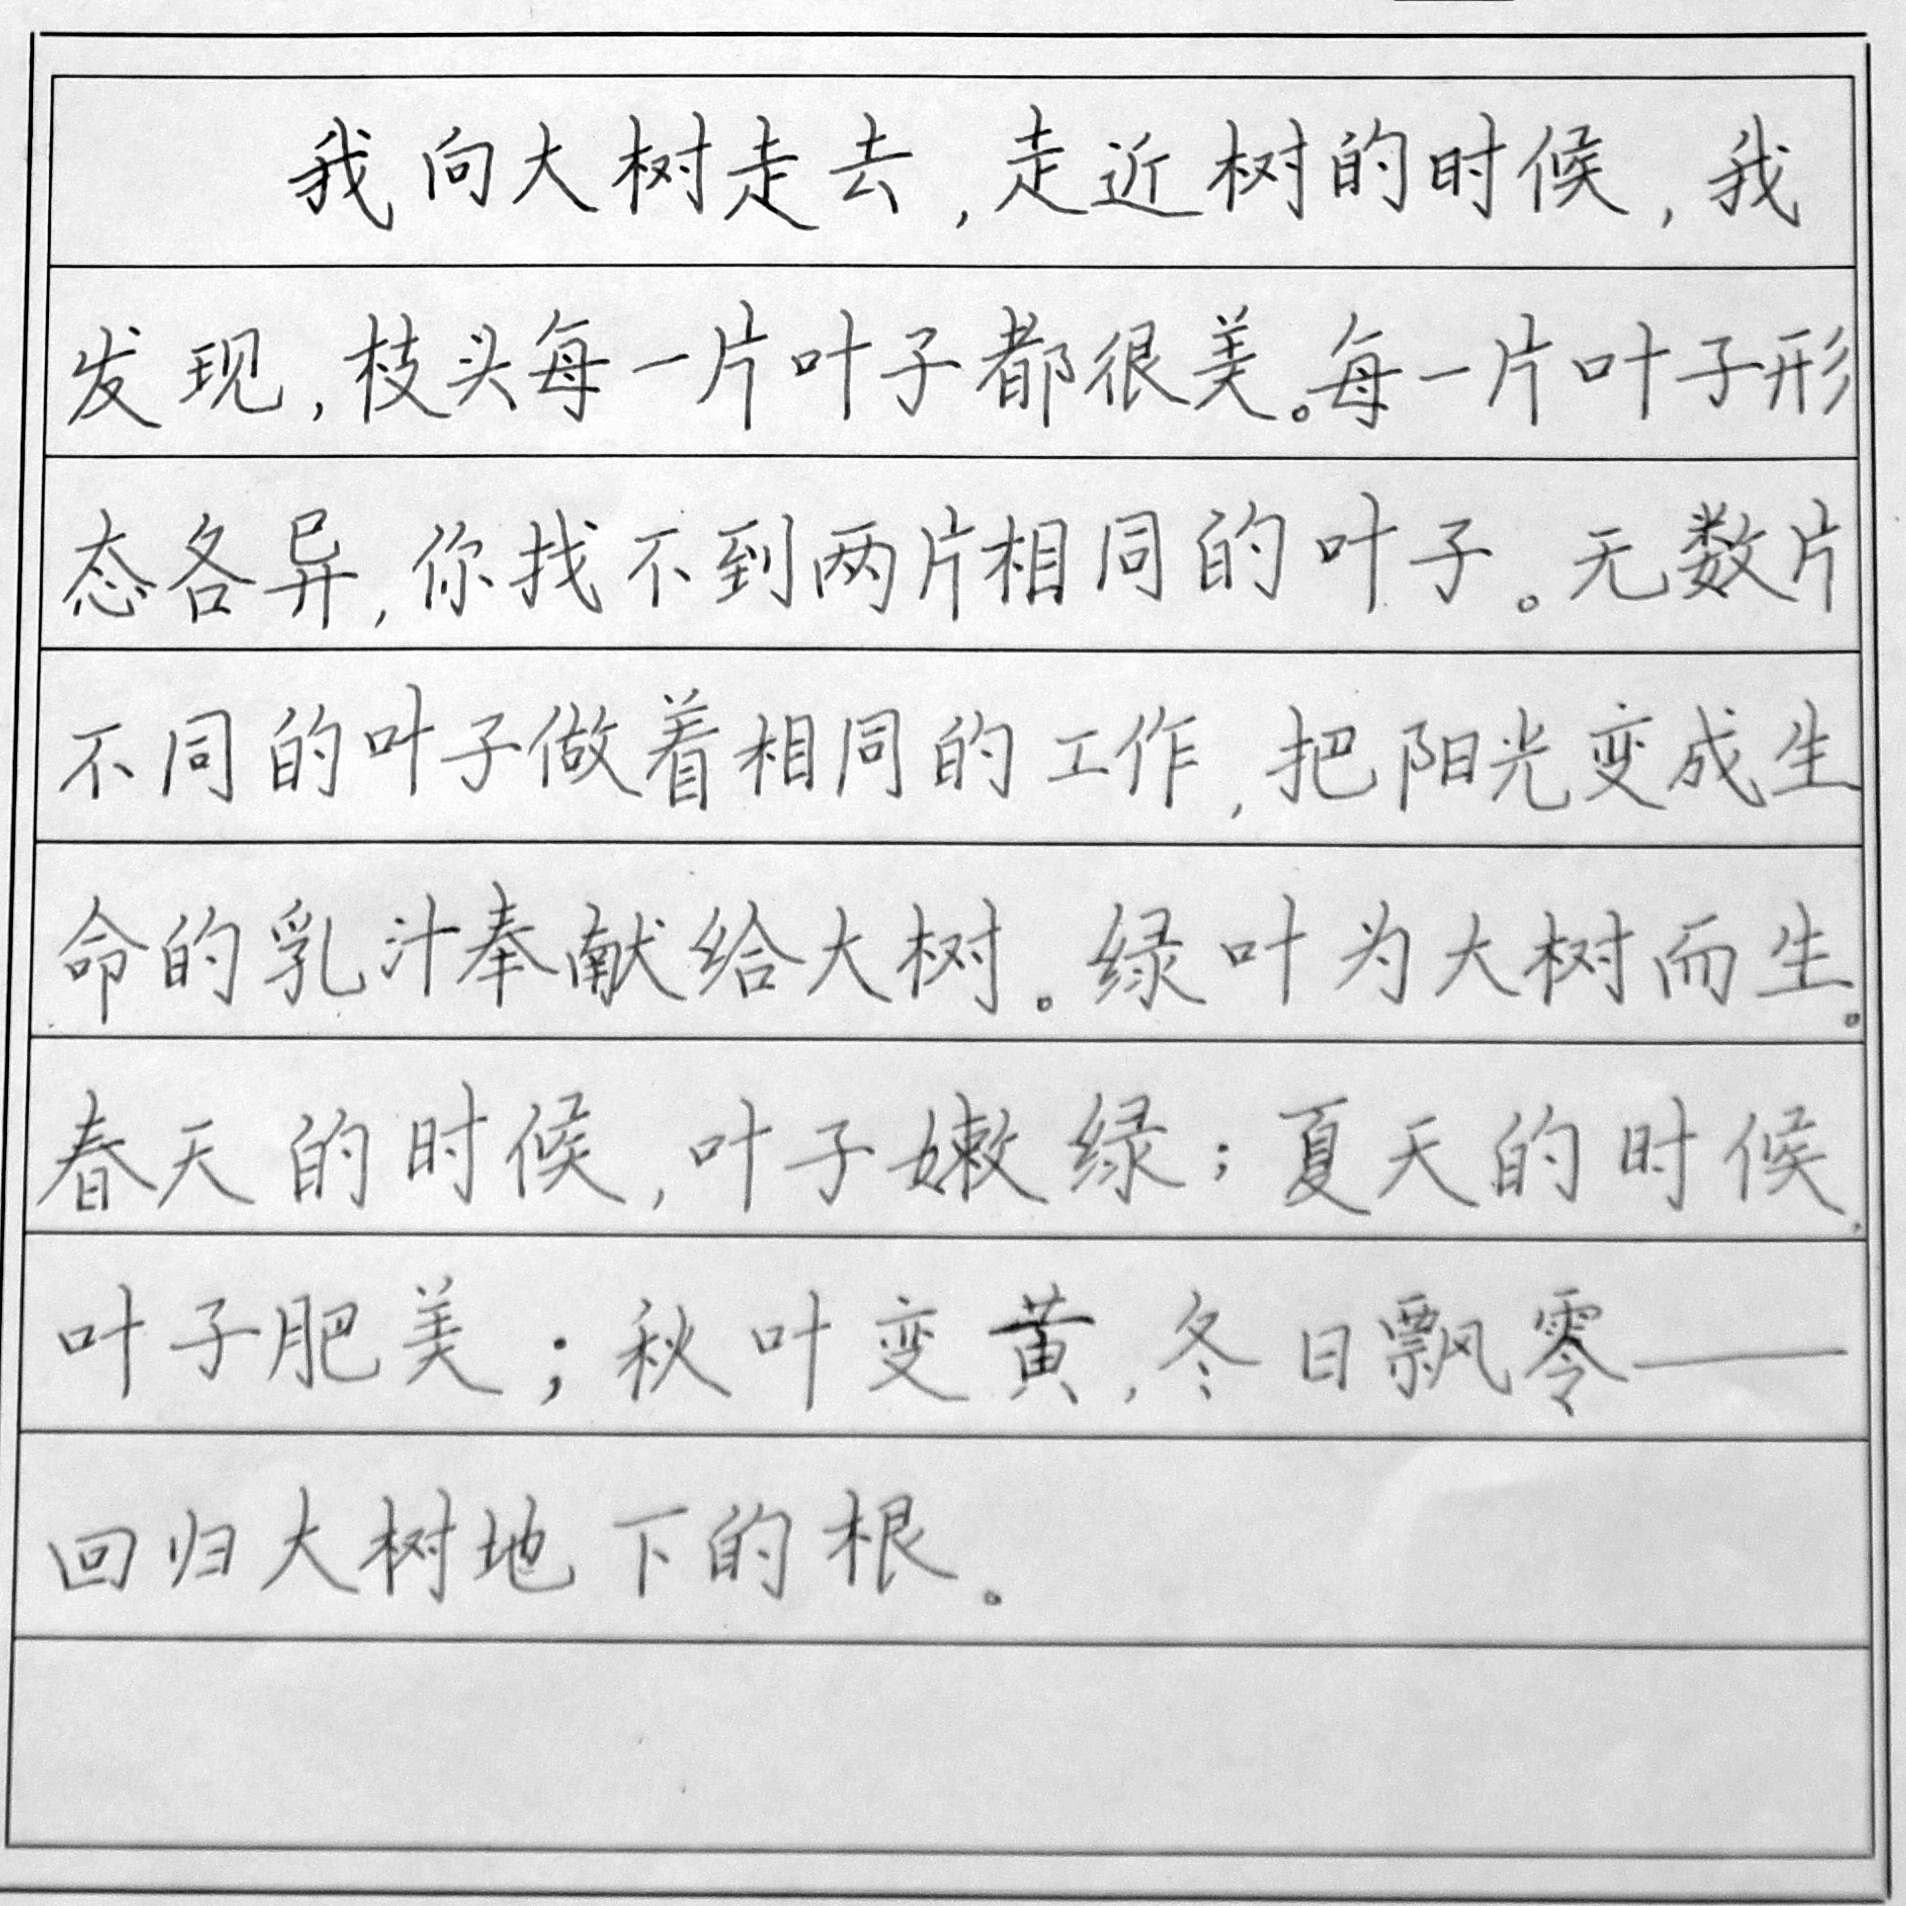 我向大树走去，走近树的时候，我
发现，枝头每一片叶子都很美。每一片叶子形
态各异，你找不到两片相同的叶子。无数片
不同的叶子做着相同的工作，把阳光变成生
命的乳汁奉献给大树。绿叶为大树而生。
春天的时候，叶子嫩绿；夏天的时候，
叶子肥美；秋叶变黄，冬日飘零——
回归大树地下的根。